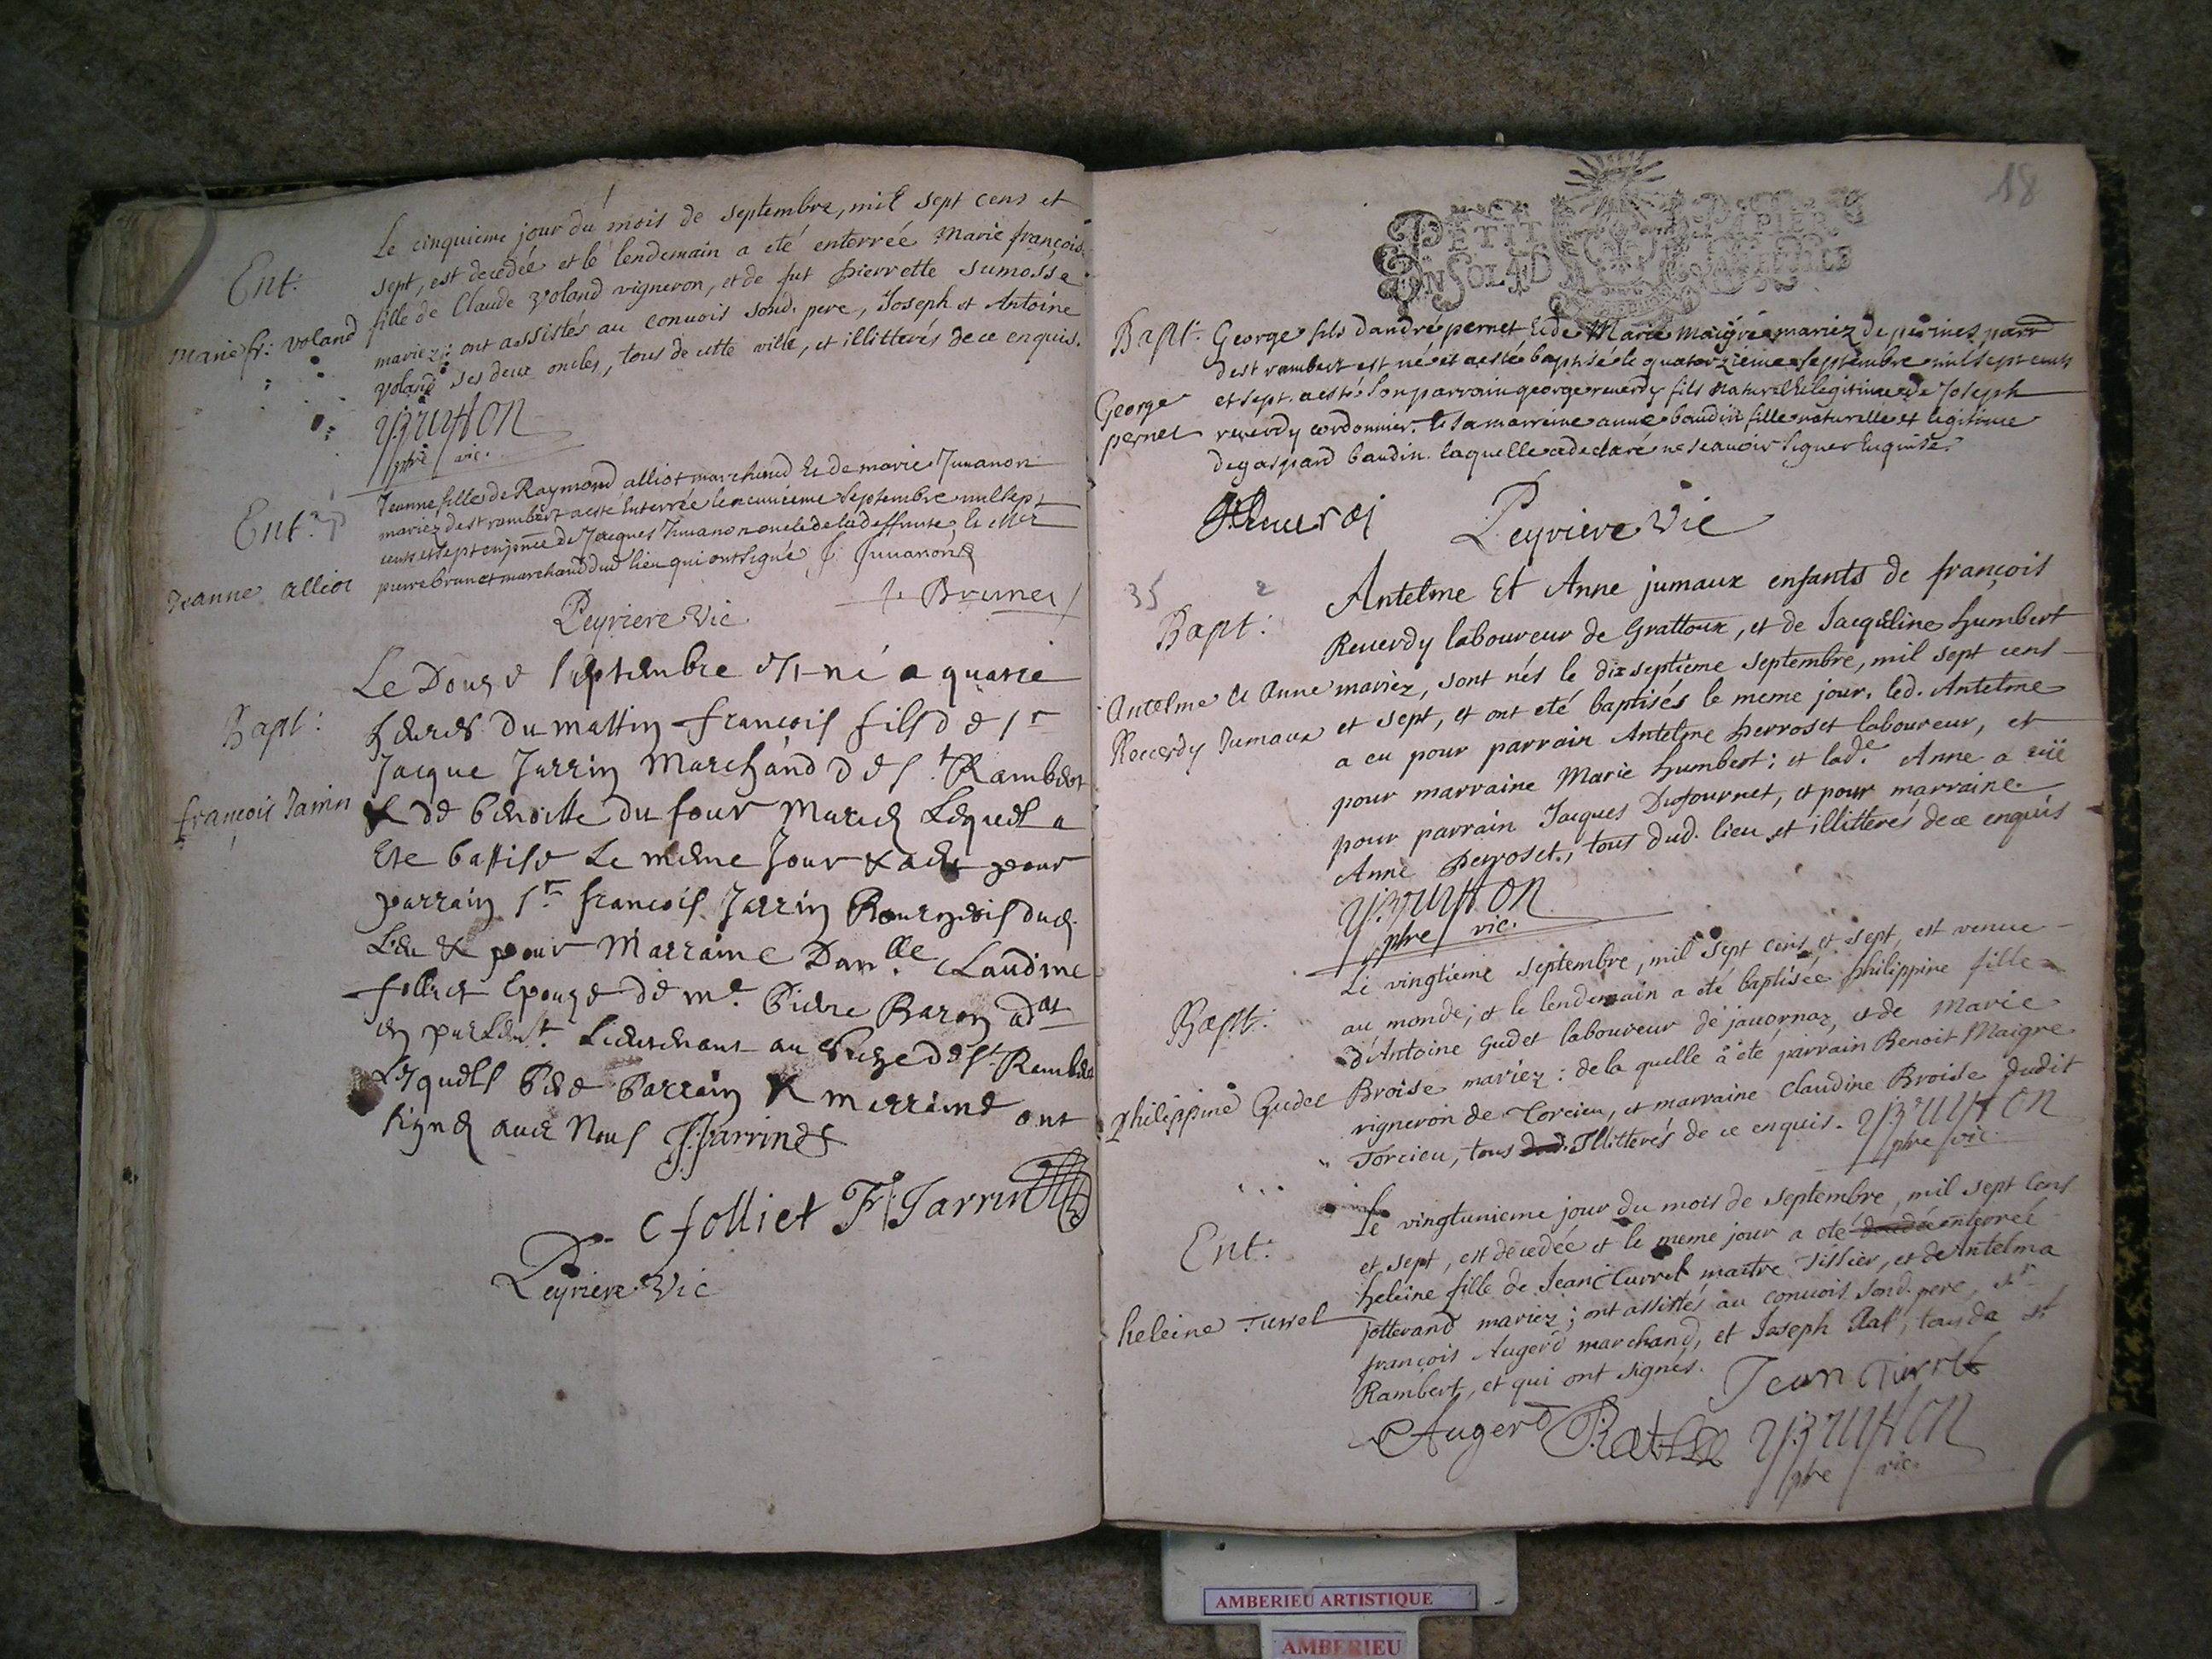 Le cinquieme jour du mois de septembre, mil sept cens et
Ent:
sept, est decedée et le lendemain a eté enterrée Marie françoise
fille de Claude Voland vigneron, et de fut Pierrette Sumossa
Marie fr: Voland
mariez: ont assistés au convois sond. pere, Joseph et Antoine
Voland ses deux oncles, tous de cette ville, et illitterés de ce enquis.
pbre vic.
Jeanne fille de Raymond alliot marchand Et de marie Juuanon
Ent:
mariez de st rambert a esté Enterrée le neuuieme Septembre mil sept
cents et sept en pnce de Jacques Juuanon oncle de la deffunte, le
pierre brunet marchand dud lieu qui ont signé J. Juuanon
Jeanne alliot
P. Brunet
Peyriere Vic
Le Douze septembre est né a quatre
Bapt:
heures du mattin françois fils de sr
Jacque Jarrin Marchand de st Rambert
françois Jarrin
& de benoitte du four Mariez Lequel a
Ete battisé Le meme Jour & a eu pour
parrain sr françois Jarrin Bourgeois dud.
Lieu & pour Marraine Damlle Claudine
folliet Epouze de me Pierre Baron adat
en parlemt. Lieutenant au de st Rambert
Lesquels Pere Parrain & marraine ont
signez auec Nous J Jarrin
C folliet Fr Jarrin
Peyriere Vic
18
PETIT PAPIER
UN SOL 4 D
Bapt: George fils dandré pernet Et de Marie Maigre mariez de parr
de st rambert est né et a esté baptisé le quatorzieme septembre mil sept cents
George
et sept. a esté son parrain george reuerdy fils naturel et legitime de Joseph
pernet
reuerdy cordonnier. Et sa marreine anne baudin fille naturelle et legitime
de gaspard baudin. laquelle a declaré ne scauoir signer Enquise.
Peyriere Vic
35 2
Antelme Et Anne jumaux enfants de françois
Bapt:
Reuerdy laboureur de Grattoux, et de Jacqueline humbert
Antelme et Anne
mariez, sont nés le dix septieme septembre, mil sept cens
Reuerdy Jumaux
et sept, et ont eté baptisés le meme jour. led. Antelme
a eu pour parrain Antelme Perroset laboureur, et
pour marraine Marie humbert; et lade. Anne a eüe
pour parrain Jacques Dufournet, et pour marraine
Anne Perroset, tous dud. lieu et illitterés de ce enquis
pbre vic.
Le vingtieme septembre, mil sept cens et sept, est venue
Bapt:
au monde, et le lendemain a eté baptisée philippine fille
d'Antoine Gudet laboureur de jauornaz, et de Marie
philippine Gudet
Broise mariez: de la quelle a eté parrain Benoit Maigre
vigneron de Torcieu, et marraine Claudine Broise dudit
Torcieu, tous Illitterés de ce enquis.
pbre vic.
Le vingtunieme jour du mois de septembre, mil sept cens
Ent:
et sept, est decedée et le meme jour a eté decedée enterrée
heleine fille de Jean Turrel maitre Tissier, et de Antelma
heleine Turrel
jotterand mariez; ont assistés au convois sond. pere, sr
françois Augerd marchand, et Joseph Rat, tous de st
Rambert, et qui ont signés. Jean Turrel
Augerd Rat
pbre vic.
AMBERIEU ARTISTIQUE
AMBERIEU